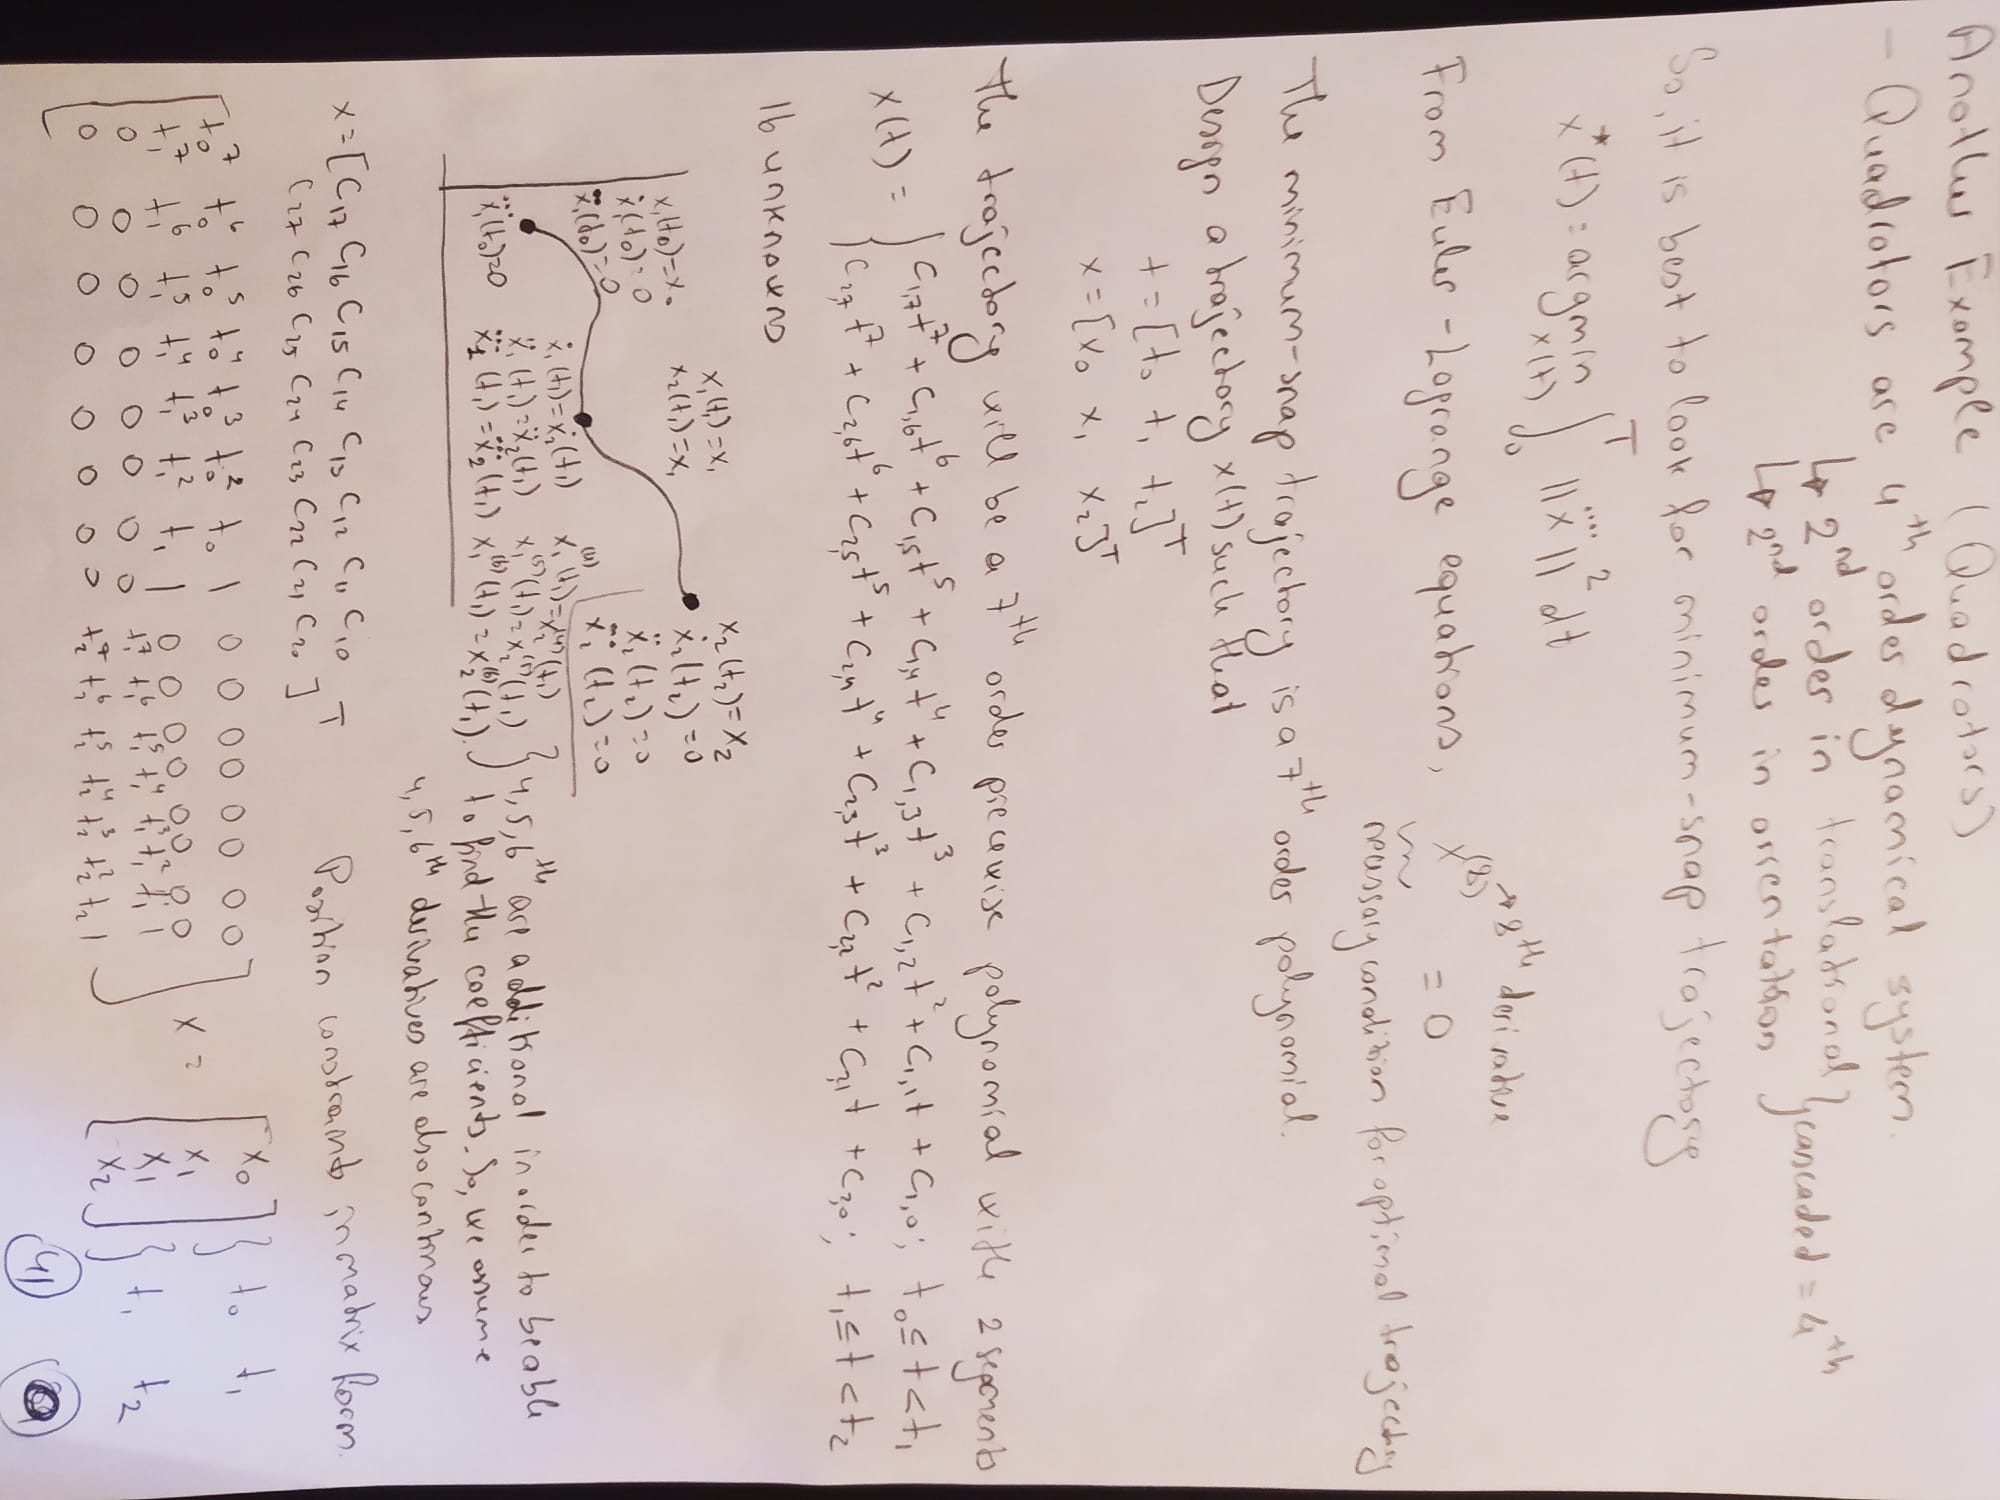 Another Example (Quadrotors)
- Quadrotors are 4th order dynamical system.
↳ 2nd order in translational } cascaded = 4th
↳ 2nd order in orientation
So, it is best to look for minimum-snap trajectory
x*(t) = argmin x(t) ∫₀ᵀ ||x⃜||² dt
From Euler-Lagrange equations, x⁽⁸⁾ = 0
→ 8th derivative
necessary condition for optimal trajectory
The minimum-snap trajectory is a 7th order polynomial.
Design a trajectory x(t) such that
t = [t₀ t₁ t₂]ᵀ
x = [x₀ x₁ x₂]ᵀ
The trajectory will be a 7th order piecewise polynomial with 2 segments
x(t) = { c₁,₇t⁷ + c₁,₆t⁶ + c₁,₅t⁵ + c₁,₄t⁴ + c₁,₃t³ + c₁,₂t² + c₁,₁t + c₁,₀; t₀ ≤ t < t₁
c₂,₇t⁷ + c₂,₆t⁶ + c₂,₅t⁵ + c₂,₄t⁴ + c₂,₃t³ + c₂,₂t² + c₂,₁t + c₂,₀; t₁ ≤ t < t₂
16 unknowns
x₁(t₀) = x₀
ẋ₁(t₀) = 0
ẍ₁(t₀) = 0
x⃛₁(t₀) = 0
x₁(t₁) = x₁
x₂(t₁) = x₁
ẋ₁(t₁) = ẋ₂(t₁)
ẍ₁(t₁) = ẍ₂(t₁)
x⃛₂(t₁) = x⃛₂(t₁)
x₂(t₂) = x₂
ẋ₂(t₂) = 0
ẍ₂(t₂) = 0
x⃛₂(t₂) = 0
x₁⁽⁴⁾(t₁) = x₂⁽⁴⁾(t₁)
x₁⁽⁵⁾(t₁) = x₂⁽⁵⁾(t₁)
x₁⁽⁶⁾(t₁) = x₂⁽⁶⁾(t₁)
} 4, 5, 6th are additional in order to be able
to find the coefficients. So, we assume
4, 5, 6th derivatives are also continous
x = [c₁₇ c₁₆ c₁₅ c₁₄ c₁₃ c₁₂ c₁₁ c₁₀
c₂₇ c₂₆ c₂₅ c₂₄ c₂₃ c₂₂ c₂₁ c₂₀]ᵀ
Position constraints in matrix form.
[ t₀⁷ t₀⁶ t₀⁵ t₀⁴ t₀³ t₀² t₀ 1 0 0 0 0 0 0 0 0 ] x = [ x₀ ] } t₀ t₁
t₁⁷ t₁⁶ t₁⁵ t₁⁴ t₁³ t₁² t₁ 1 0 0 0 0 0 0 0 0 x₁
0 0 0 0 0 0 0 0 t₁⁷ t₁⁶ t₁⁵ t₁⁴ t₁³ t₁² t₁ 1 x₁ } t₁ t₂
0 0 0 0 0 0 0 0 t₂⁷ t₂⁶ t₂⁵ t₂⁴ t₂³ t₂² t₂ 1 x₂